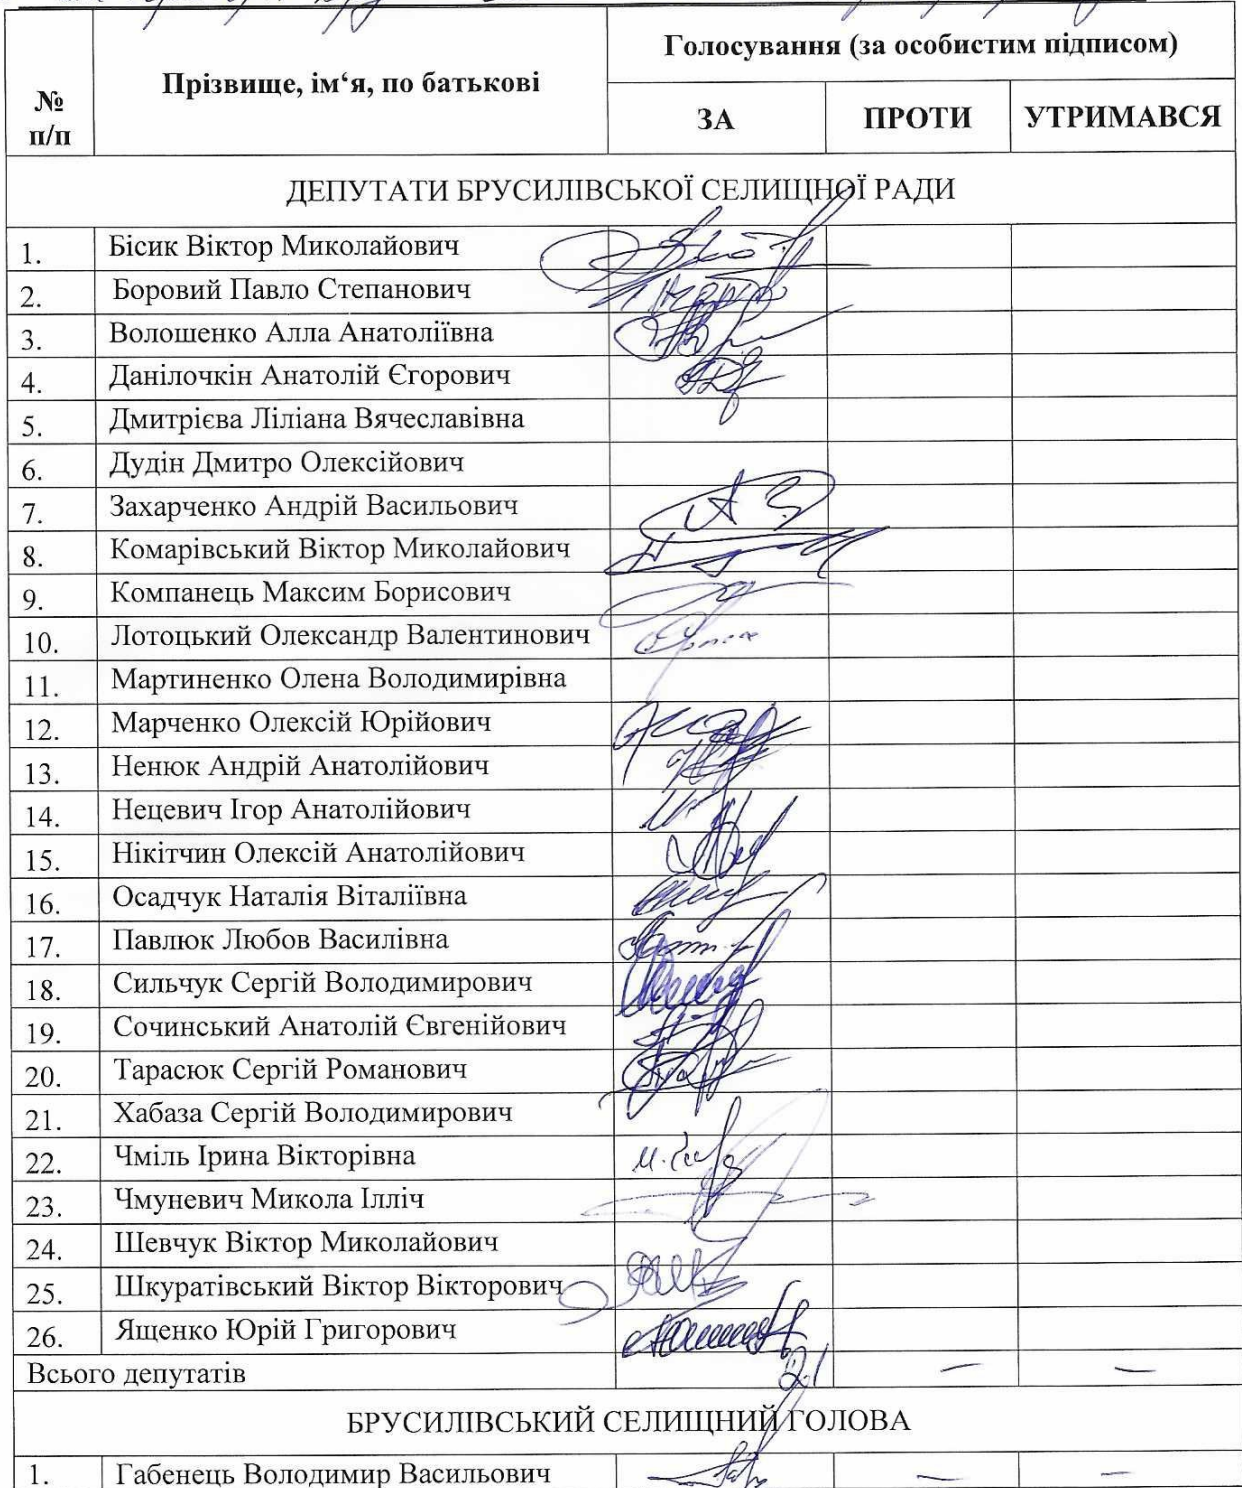 № п/п
Прізвище, ім‘я, по батькові
Голосування (за особистим підписом)
ЗА
ПРОТИ
УТРИМАВСЯ
ДЕПУТАТИ БРУСИЛІВСЬКОЇ СЕЛИЩНОЇ РАДИ
1. Бісик Віктор Миколайович
2. Боровий Павло Степанович
3. Волошенко Алла Анатоліївна
4. Данілочкін Анатолій Єгорович
5. Дмитрієва Ліліана Вячеславівна
6. Дудін Дмитро Олексійович
7. Захарченко Андрій Васильович
8. Комарівський Віктор Миколайович
9. Компанець Максим Борисович
10. Лотоцький Олександр Валентинович
11. Мартиненко Олена Володимирівна
12. Марченко Олексій Юрійович
13. Ненюк Андрій Анатолійович
14. Нецевич Ігор Анатолійович
15. Нікітчин Олексій Анатолійович
16. Осадчук Наталія Віталіївна
17. Павлюк Любов Василівна
18. Сильчук Сергій Володимирович
19. Сочинський Анатолій Євгенійович
20. Тарасюк Сергій Романович
21. Хабаза Сергій Володимирович
22. Чміль Ірина Вікторівна
23. Чмуневич Микола Ілліч
24. Шевчук Віктор Миколайович
25. Шкуратівський Віктор Вікторович
26. Ященко Юрій Григорович
Всього депутатів 21 — —
БРУСИЛІВСЬКИЙ СЕЛИЩНИЙ ГОЛОВА
1. Габенець Володимир Васильович — —